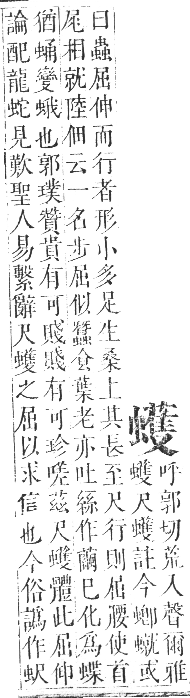 蠖
呼郭切荒入聲爾雅
蠖尺蠖註今蝍𧑙或
曰蟲屈伸而行者形小多足生桑上其長至尺行則屈腰使首
尾相就陸佃云一名步屈似蠶食葉老亦吐絲作繭已化為蝶
猶蛹變蛾也郭璞贊貴有可賤賤有可珍嗟茲尺蠖體此屈伸
論配龍蛇見歎聖人易繫辭尺蠖之屈以求信也今俗譌作蚇